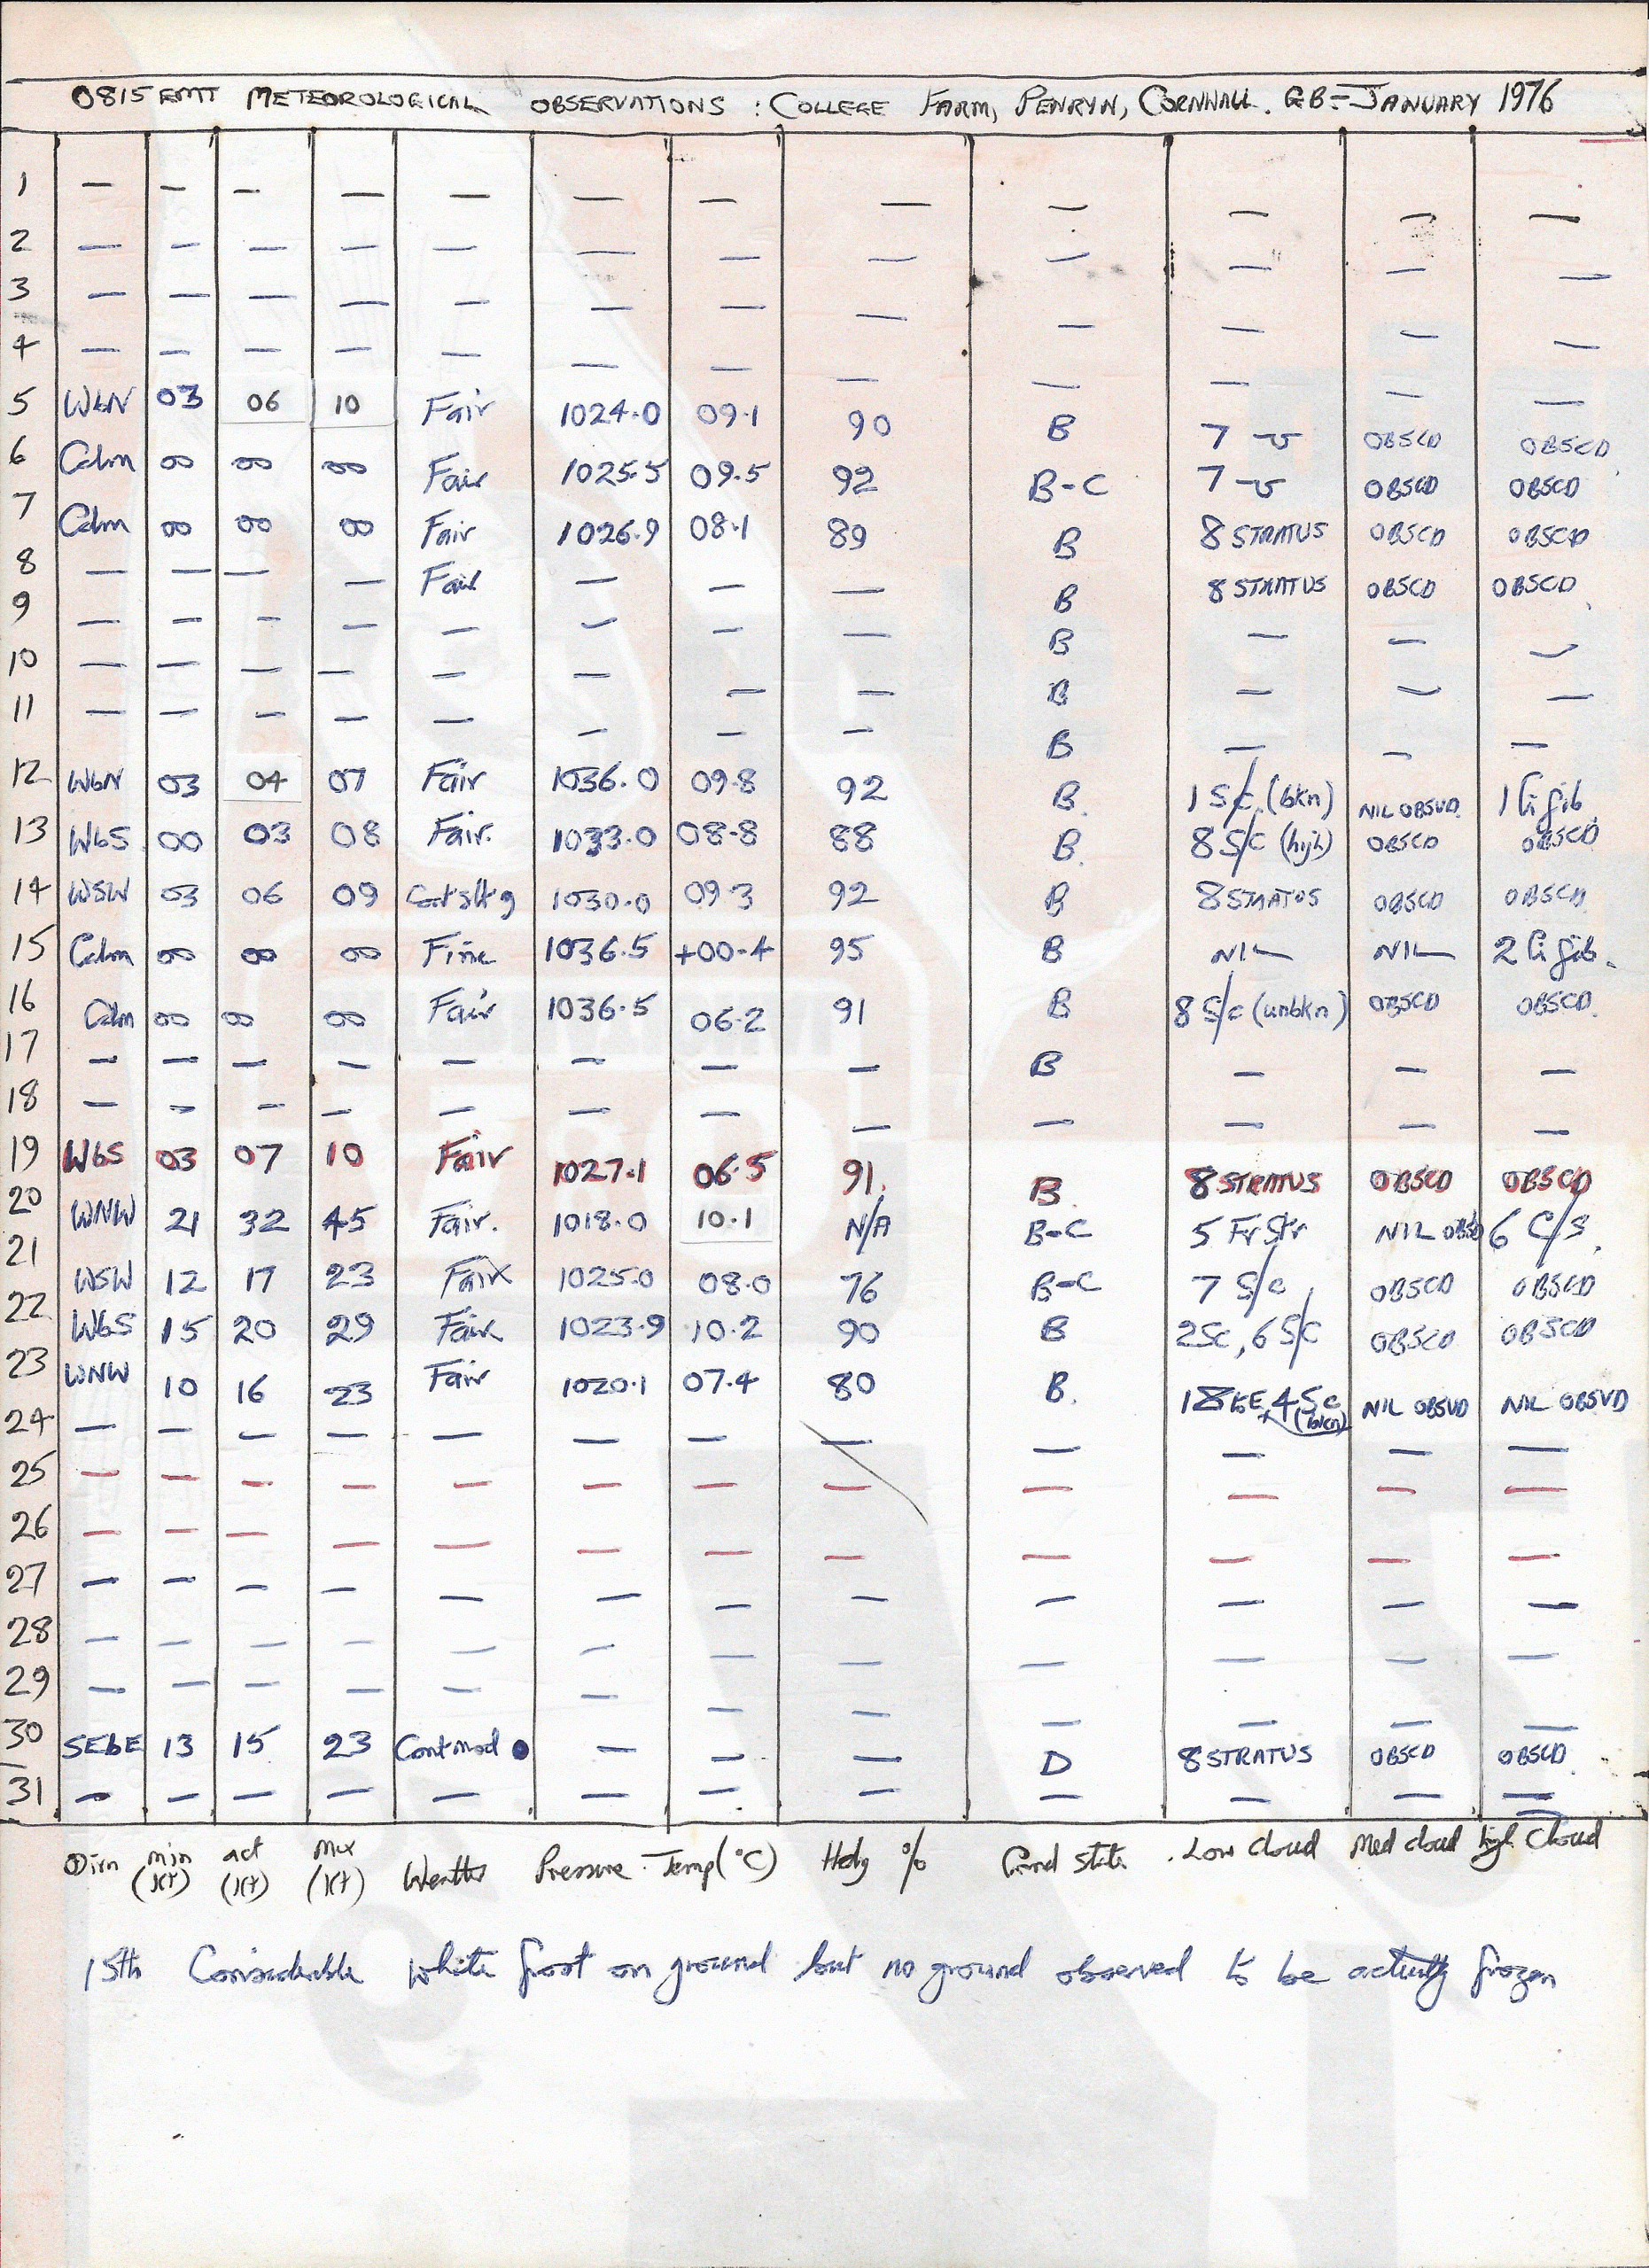 0815 GMT METEOROLOGICAL OBSERVATIONS : COLLEGE FARM, PENRYN, CORNWALL. GB - JANUARY 1976
1 — — — — — — — — — — — —
2 — — — — — — — — — — —
3 — — — — — — — — — — — —
4 — — — — — — — — — — — —
5 WbN 03 06 10 Fair 1024.0 09.1 90 B 7 OBSCD OBSCD
6 Calm 00 00 00 Fair 1025.5 09.5 92 B-C 7 OBSCD OBSCD
7 Calm 00 00 00 Fair 1026.9 08.1 89 B 8 STRATUS OBSCD OBSCD
8 — — — — Fair — — — B 8 STRATUS OBSCD OBSCD
9 — — — — — — — — B — — —
10 — — — — — — — — B — — —
11 — — — — — — — — B — — —
12 WbN 03 04 07 Fair 1036.0 09.8 92 B. 1 S/c (bkn) NIL OBSVD. 1 Ci fib
13 WbS 00 03 08 Fair. 1033.0 08.8 88 B. 8 S/c (high) OBSCD OBSCD
14 WSW 03 06 09 1030.0 09.3 92 B 8 STRATUS OBSCD OBSCD
15 Calm 00 00 00 Fine 1036.5 +00.4 95 B NIL NIL 2 Ci fib.
16 Calm 00 00 00 Fair 1036.5 06.2 91 B 8 S/c (unbkn) OBSCD OBSCD.
17 — — — — — — — — B — — —
18 — — — — — — — — — — — —
19 WbS 03 07 10 Fair 1027.1 06.5 91. B. 8 STRATUS OBSCD OBSCD
20 WNW 21 32 45 Fair. 1018.0 10.1 N/A B-C 5 Fr Str NIL OBSD 6 C/S.
21 WSW 12 17 23 Fair 1025.0 08.0 76 B-C 7 S/c OBSCD OBSCD
22 WbS 15 20 29 Fair 1023.9 10.2 90 B 2Sc, 6 S/c OBSCD OBSCD
23 WNW 10 16 23 Fair 1020.1 07.4 80 B. 4 Sc (bkn) NIL OBSVD NIL OBSVD
24 — — — — — — — — — — — —
25 — — — — — — — — — — — —
26 — — — — — — — — — — — —
27 — — — — — — — — — — — —
28 — — — — — — — — — — — —
29 — — — — — — — — — — — —
30 SEbE 13 15 23 Cont mod ● — — — D 8 STRATUS OBSCD OBSCD.
31 — — — — — — — — — — — —
Dirn min (Kt) act (Kt) Max (Kt) Weather Pressure Temp (°C) Hdy % Grnd state Low Cloud Med cloud high Cloud
15th Considerable white frost on ground but no ground observed to be actually frozen